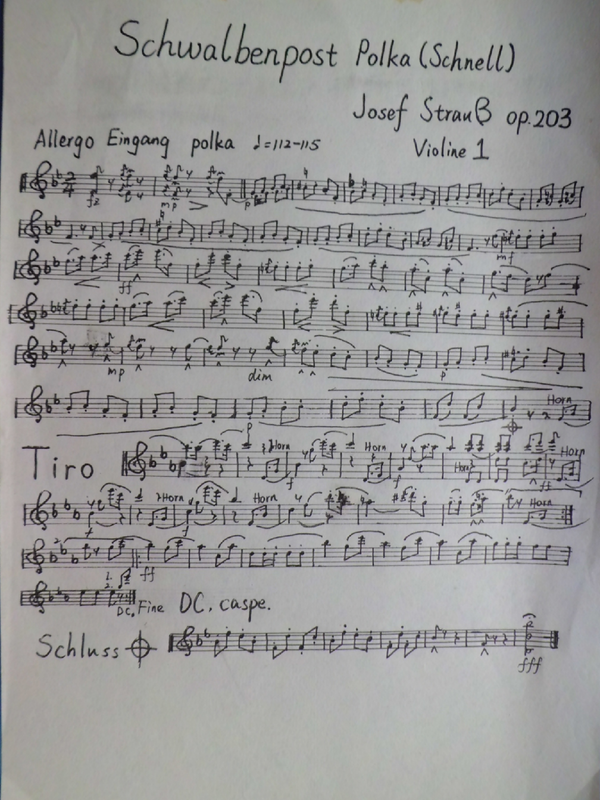 Schwalbenpost Polka (Schnell)
Josef Strauß op.203
Allergo Eingang polka ♩=112-115 Violine 1
2/4 fz mp > p
mf
ff
mp dim p
Horn
p
Tiro Horn Horn Horn Horn
f f ff
Horn Horn Horn
f f
ff
1.
2.
DC. Fine DC. caspe.
Schluss
fff